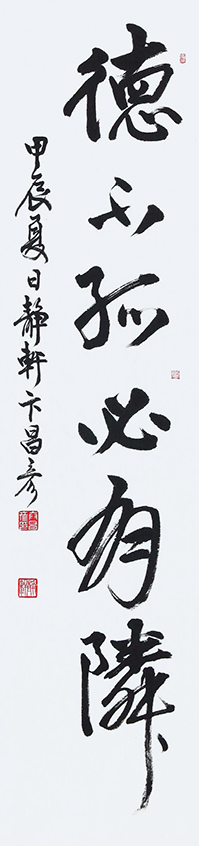 德不孤必有隣
甲辰夏日靜軒卞昌彥